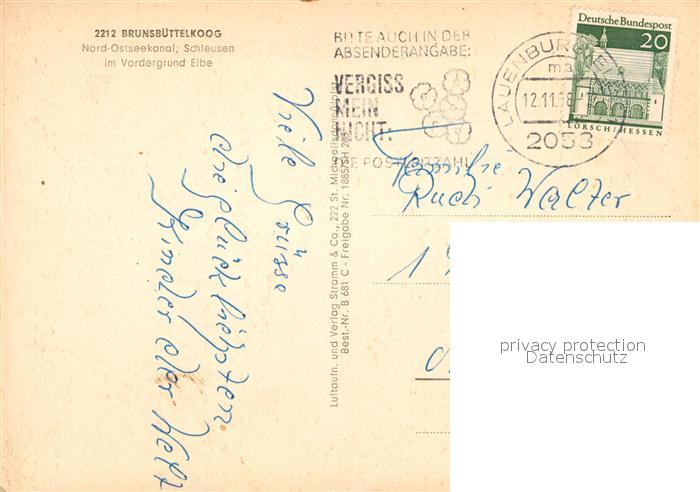 2212 BRUNSBÜTTELKOOG
Nord-Ostseekanal; Schleusen
im Vordergrund Elbe
Viele Grüsse
die glücklichsten
Kinder der Welt
Luftaufn. und Verlag Stramm & Co., 222 St. Michaelisdonn/Holst.
Best.-Nr. B 681 C - Freigabe Nr. 1885/SH 203
BITTE AUCH IN DER
ABSENDERANGABE:
VERGISS
MEIN
NICHT:
DIE POSTLEITZAHL
LAUENBURG
12.11.68
2058
Deutsche Bundespost
20
LORSCH/HESSEN
Familie
Rudi Walter
1
privacy protection
Datenschutz